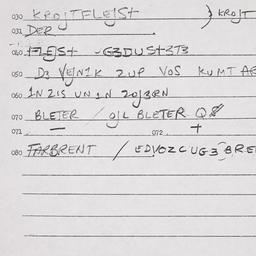 030 KROJTFLEJST } KROJT
031 DER
040 FLEJST -G3DUST3T3
050 D3 VEJNIK ZUP VOS KUMT AF
060 1N ZIS UN 1N 20J3RN
070 BLETER / OJL BLETER
071 — 072 +
080 FARBRENT / EDVOZCUG3BRE